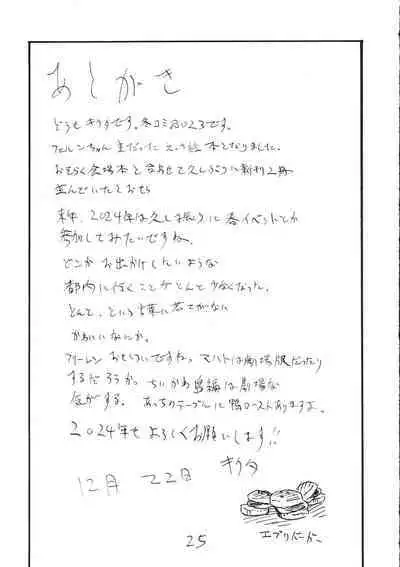 あとがき
どうもキクタです。冬コミ2023です。
フェルンちゃんまだいった えっち絵本となりました。
おそらく会場本と合わせて久しぶりに新刊2冊
並んでいたと思う
来年、2024年は久しぶりに春イベントとか
参加してみたいですね。
どこか お出かけしたいような
都内に行くことがとんと少なくなった。
とんと、という言葉に若さがない
かわりになにか。
フリーレン おもしろいですね。マハトは劇場版だったり
するだろうか。ちいかわ島編は劇場な
気がする。あっちのテーブルに鴨ローストありますよ。
2024年もよろしくお願いします!!
キクタ
12月 22日
エブリバーガー
25